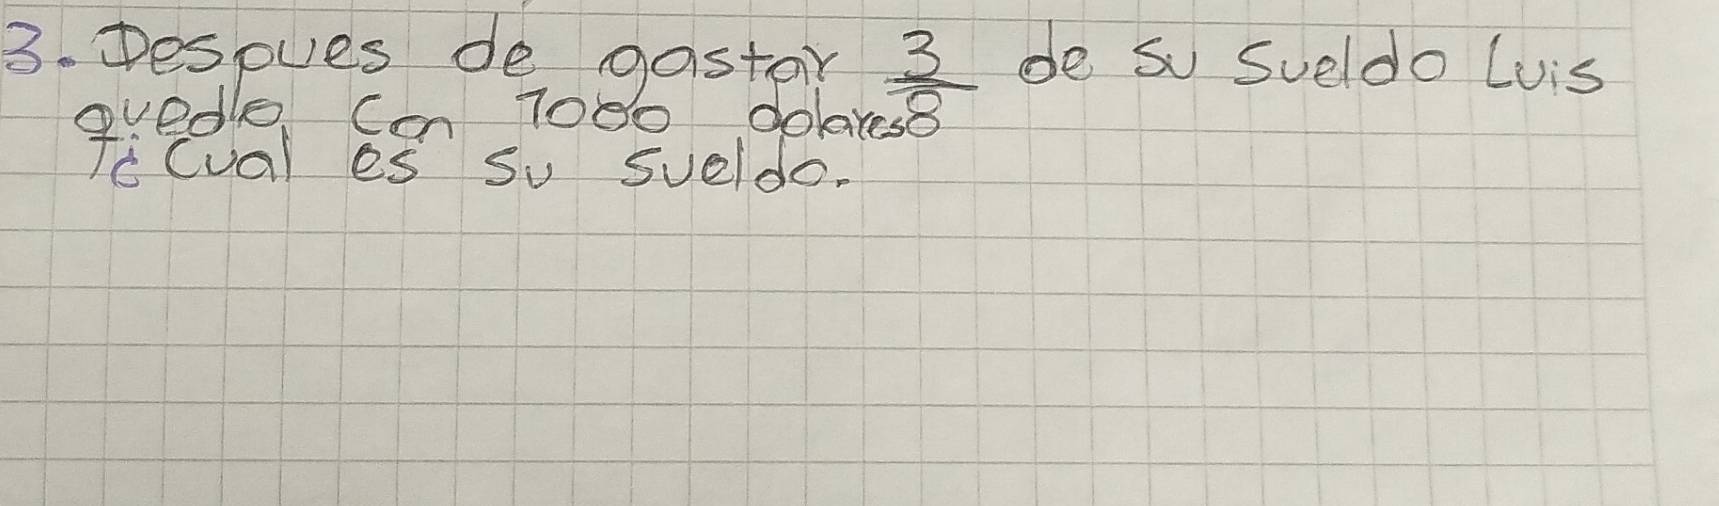 3. Despues de gastar 3/8 de su sueldo Luis
quedo con 1000 dolares
¿Cual es su sueldo.